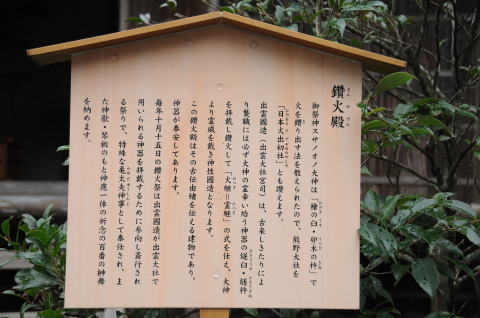 鑽火殿
さん か でん
御祭神スサノオノ大神は「檜の臼 卯木の杵」で
火を鑽り出す法を教えられたので、熊野大社を
「日本火出初社」とも讃えます。
出雲國造（出雲大社宮司）は、古来しきたりによ
り襲職には必ず大神の霊幸い給う神器の燧臼・燧杵
を拝戴し鑽火して「火継＝霊継」の式を仕え、大神
より霊威を戴き神性國造となります。
この鑽火殿はその古伝由緒を伝える建物であり、
神器が奉安してあります。
毎年十月十五日の鑽火祭は出雲國造が出雲大社で
用いられる神器を拝戴すために参向し斎行され
る祭りで、特殊な亀太夫神事として奉仕され、ま
た神歌・琴板のもと神應一体の祈念の百番の榊舞
を納めます。